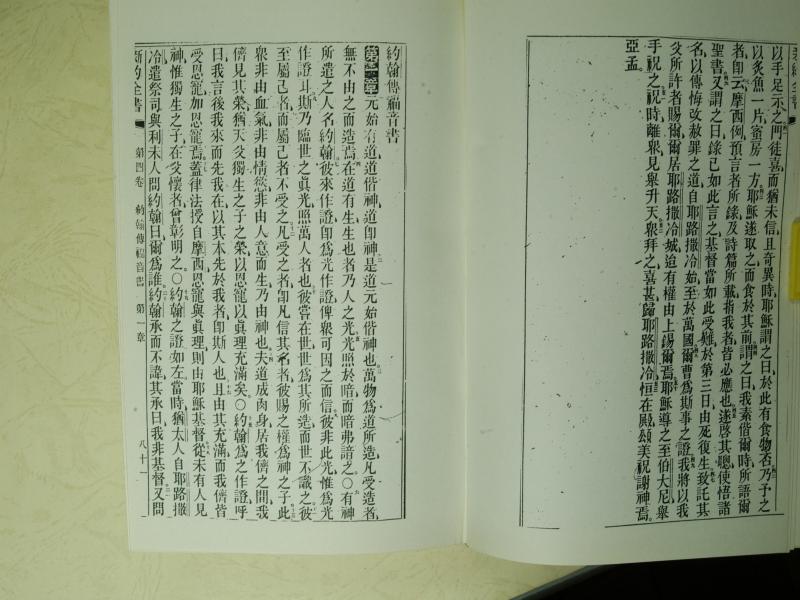 新約全書
以手足示之門徒喜而猶未信且奇異時耶穌謂之曰於此有食物否乃予之
以炙魚一片蜜房一方耶穌遂取之而食於其前謂之曰我素偕爾時所語爾
者卽云摩西例預言者所錄及詩篇所載指我者皆必應也遂啓其聰使悟諸
聖書又謂之曰錄已如此言之基督當如此受難於第三日由死復生致託其
名以傳悔改赦罪之道自耶路撒冷始至於萬國爾曹爲斯事之證我將以我
父所許者賜爾爾居耶路撒冷城迨有權由上錫爾焉耶穌導之至伯大尼舉
手祝之祝時離衆見舉升天衆拜之喜甚歸耶路撒冷恒在殿頌美祝謝神焉
亞孟
約翰傳福音書
第一章元始有道道偕神道卽神是道元始偕神也萬物爲道所造凡受造者
無不由之而造焉在道有生生也者乃人之光光照於暗而暗弗識之〇有神
所遣之人名約翰彼來作證卽爲光作證俾衆可因之而信彼非此光惟爲光
作證耳斯乃臨世之眞光照萬人者也彼嘗在世世爲其所造而世不識之彼
至屬己者而屬己者不受之凡受之者卽凡信其名者彼賜之權爲神之子此
衆非由血氣非由情慾非由人意而生乃由神也夫道成肉身居我儕之間我
儕見其榮猶天父獨生之子之榮以恩寵以眞理充滿矣〇約翰爲之作證呼
曰我言後我來而先我在以其本先於我者卽斯人也且由其充滿而我儕皆
受恩寵加恩寵焉蓋律法授自摩西恩寵與眞理則由耶穌基督從未有人見
神惟獨生之子在父懷者曾彰明之〇約翰之證如左當時猶太人自耶路撒
冷遣祭司與利未人問約翰曰爾爲誰約翰承而不諱其承曰我非基督又問
新約全書 第四卷 約翰傳福音書 第一章 八十一